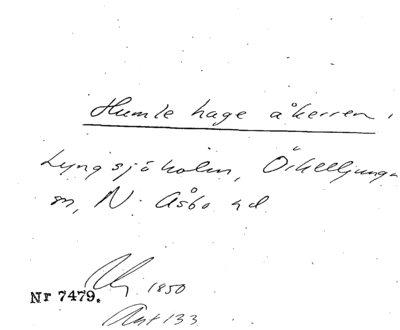 Humle hage åkerren,
Lyngsjöholm, Örkelljunga
sn, N. Åsbo hd
1850
Nr 7479.
Akt 133